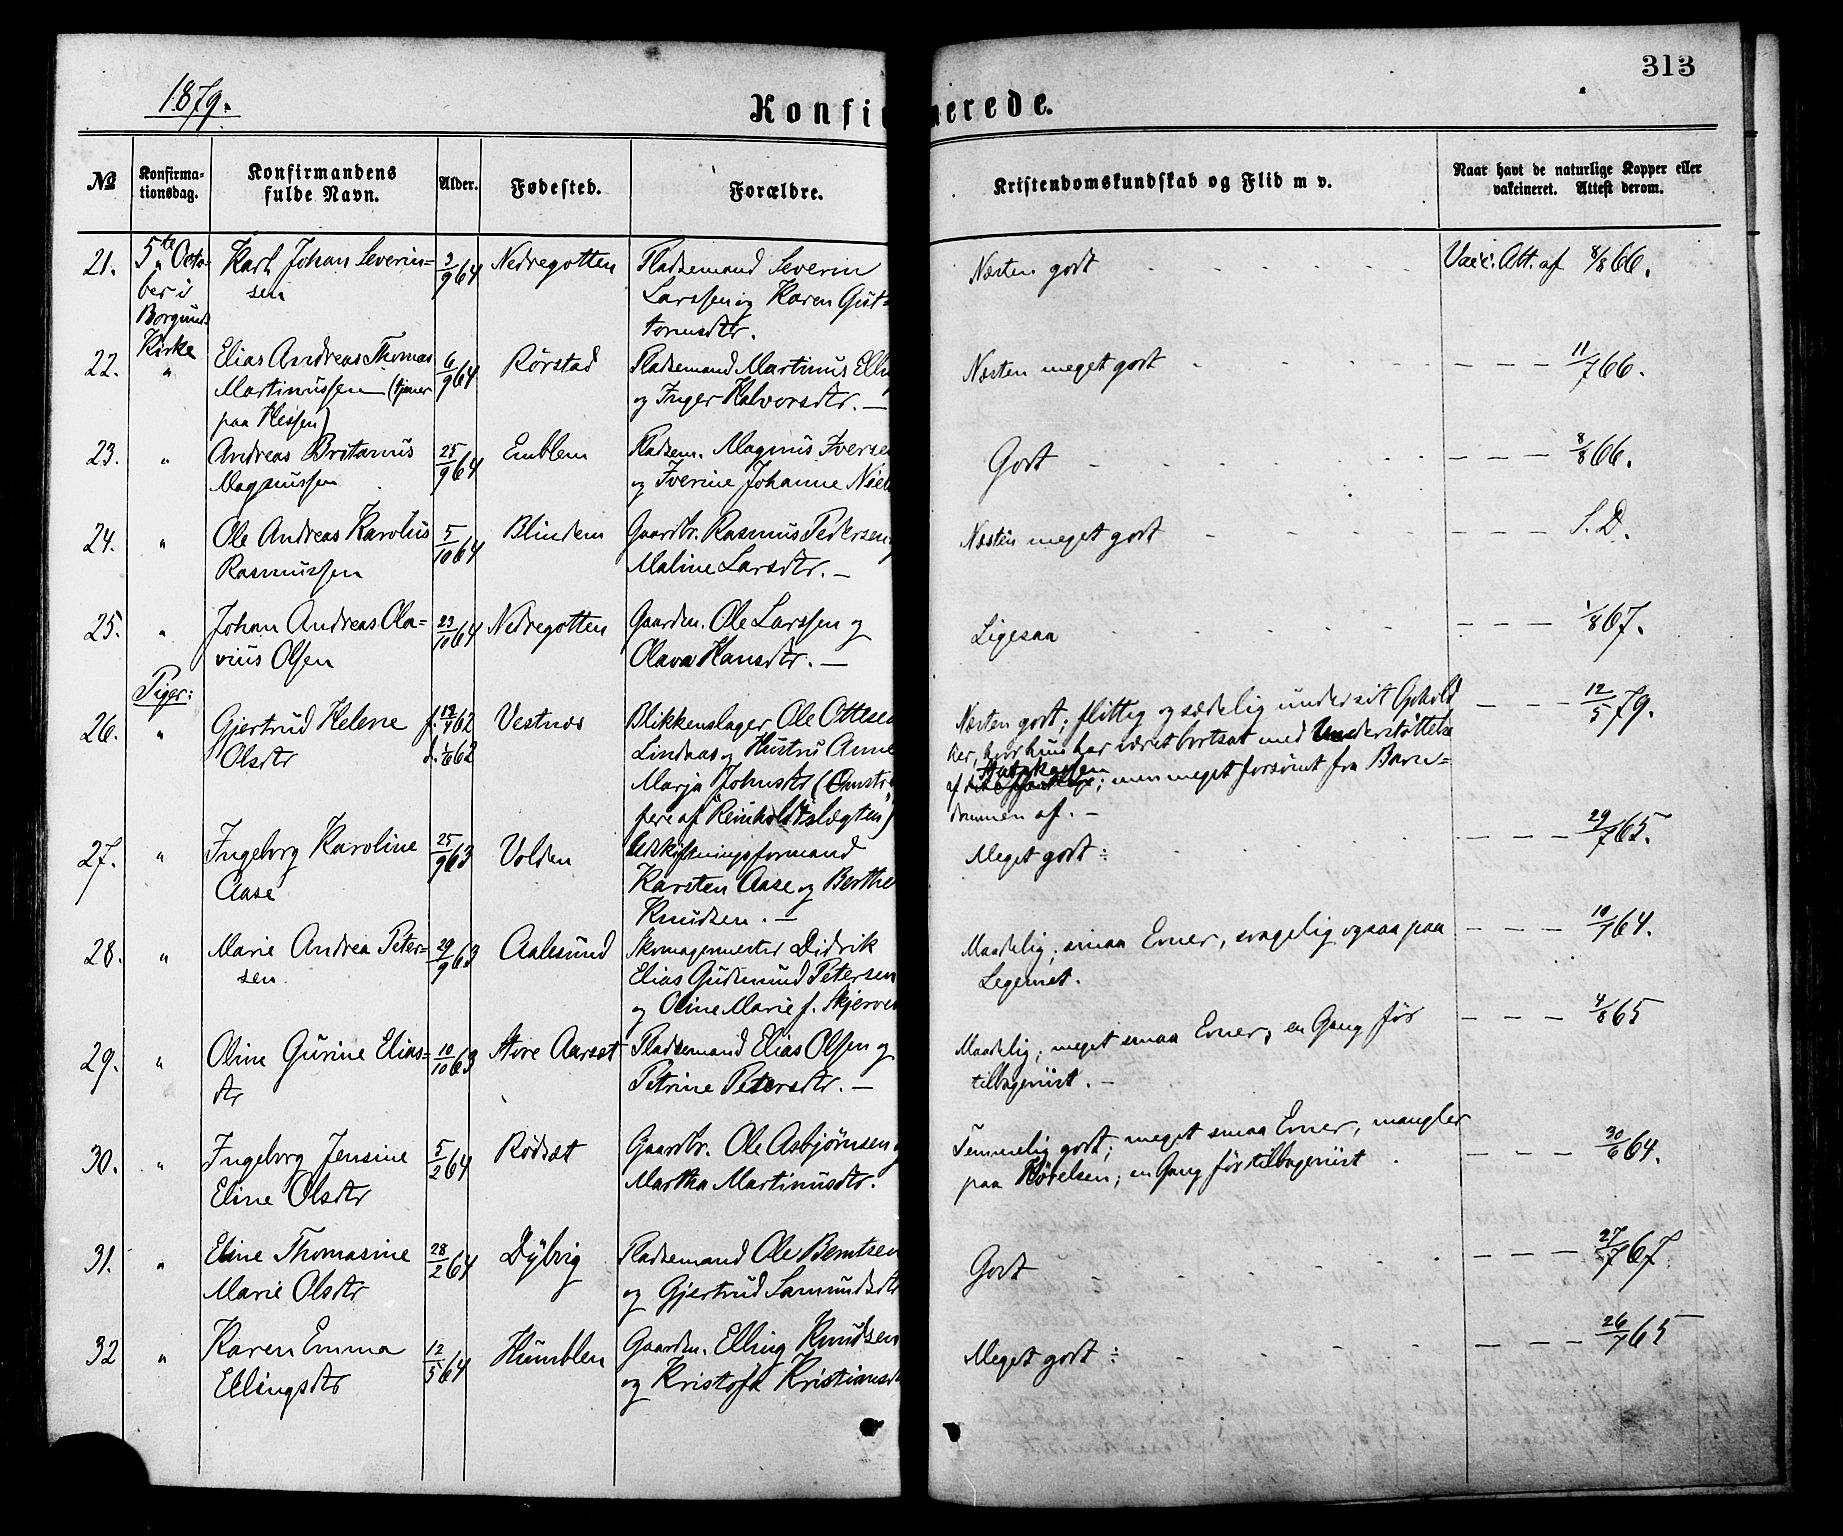 1879.
313
Konfirmerede.
№
Konfirma-
tionsdag.
Konfirmandens
fulde Navn.
Alder.
Fødested.
Forældre.
Kristendomskundskab og Flid m v.
Naar havt de naturlige Kopper eller
vakcineret. Attest derom.
21.
5te Octo-
ber i
Borgunds
Kirke
Karl Johan Severin-
sen
2/9 64
Nedregotten
Pladsemand Severin
Larssen og Karen Gut-
tormsdtr.
Næsten godt
Vacc. Att. af 8/8 66.
22.
"
Elias Andreas Thomas
Martinussen (tjener
paa Hessen)
6/9 64
Rørstad
Pladsemand Martinus
og Inger Halvorsdtr. —
Næsten meget godt
— — — 11/7 66.
23.
"
Andreas Britanus
Magnussen
25/9 64
Emblem
Pladsem. Magnus Iversen
og Iverine Johanne
Godt
— — — 8/8 66.
24.
"
Ole Andreas Karolus
Rasmussen
5/10 64
Blindem
Gaardbr. Rasmus Pedersen
Maline Larsdtr. —
Næsten meget godt
— — — S. D.
25.
"
Johan Andreas Ola-
vius Olsen
23/10 64
Nedregotten
Gaardm. Ole Larssen og
Olava Hansdtr. —
Ligesaa
— — — 1/8 67.
Piger:
26.
"
Gjertrud Helene
Olsdtr
f. 12/5 62
d. 1/6 62
Vestnæs
Blikkenslager Ole Ottesen
Lindaas og Hustru Anne
Marja Johnsdtr (Omstrei-
fere af "Reinholdtslægten")
Næsten godt; flittig og sædelig under sit Ophold
her, hvor hun har været bortsat med Understøttelse
af Statskassen; men meget forsømt fra Barn-
dommen af. —
— — — 12/5 79.
27.
"
Ingeborg Karoline
Aase
25/9 63
Volden
Udskiftningsformand
Karsten Aase og Berthe
Knudsen. —
Meget godt ÷
— — — 29/7 65.
28.
"
Marie Andrea Peter-
sen
29/9 63
Aalesund
Skomagermester Didrik
Elias Gudmund Petersen
og Oline Marie f.
Maadelig; smaa Evner, svagelig ogsaa paa
Legemet.
— — — 19/7 64.
29.
"
Oline Gurine Elias-
dtr
10/10 63
Store Aarset
Pladsemand Elias Olsen og
Petrine Petersdtr. —
Maadelig; meget smaa Evner; en Gang før
tilbagevist. —
— — — 4/8 65
30.
"
Ingeborg Jensine
Eline Olsdtr
5/2 64
Rødsæt
Gaardbr. Ole Asbjørnsen og
Martha Martinusdtr.
Temmelig godt; meget smaa Evner, mangler
paa Hørelsen; en Gang før tilbagevist
— — — 30/6 64.
31.
"
Eline Thomasine
Marie Olsdtr
28/2 64
Dybvig
Pladsemand Ole Berntsen
og Gjertrud Samundsdtr
Godt
— — — 27/7 67.
32
"
Karen Emma
Ellingsdtr
12/5 64
Humblen
Gaardm. Elling Knudsen
og Kristofa
Meget godt ÷
— — — 26/7 65